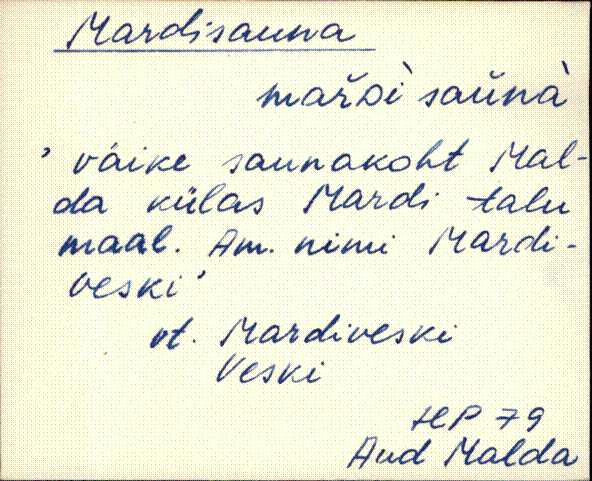 Mardisauna
mar̆Dì saŭnà
' väike saunakoht Mal-
da külas Mardi talu
maal. Am. nimi Mardi-
veski'
vt. Mardiveski
Veski
HP 79
Aud Malda